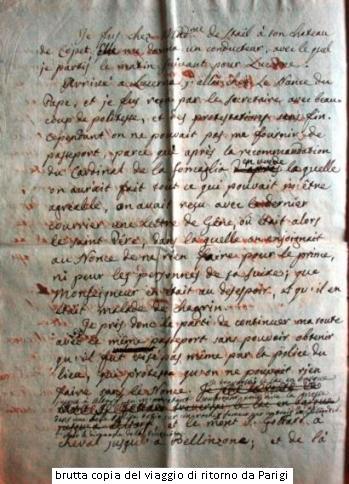 Je fus chez Mad.me de Stail à son chateau
de Copet. Elle me donna un conducteur, avec le quel
je partis le matin suivant pour Lucerne.
Arrivé a Lucerne j'allai chez le Nonce du
Pape, et je fus reçu par le Secretaire, avec beau-
coup de politesse, et des protestations sans fin.
cependant on ne pouvait pas me fournir de
passeport, parce que après la recommandation
du Cardinal de la Somaglia en vertu laquelle
on aurait fait tout ce qui pouvait m'être
agréable, on avait reçu avec le dernier
courrier une Lettre de Gêne, où était alors
le saint Père, dans la quelle on enjoignait
au Nonce de ne rien faire pour le prince,
ni pour les personnes de sa suite; que
Monseigneur en était au desespoir, et qu'il en
était malade de chagrin.
Je pris donc le parti de continuer ma route
avec le même passeport sans pouvoir obtenir
qu'il fut visé pas même par la police du
lieu, qui protesta qu'on ne pouvait rien
faire sans le Nonce.
et le mont S. Gottard à
cheval jusqu'à Bellinzone; et de là
brutta copia del viaggio di ritorno da Parigi